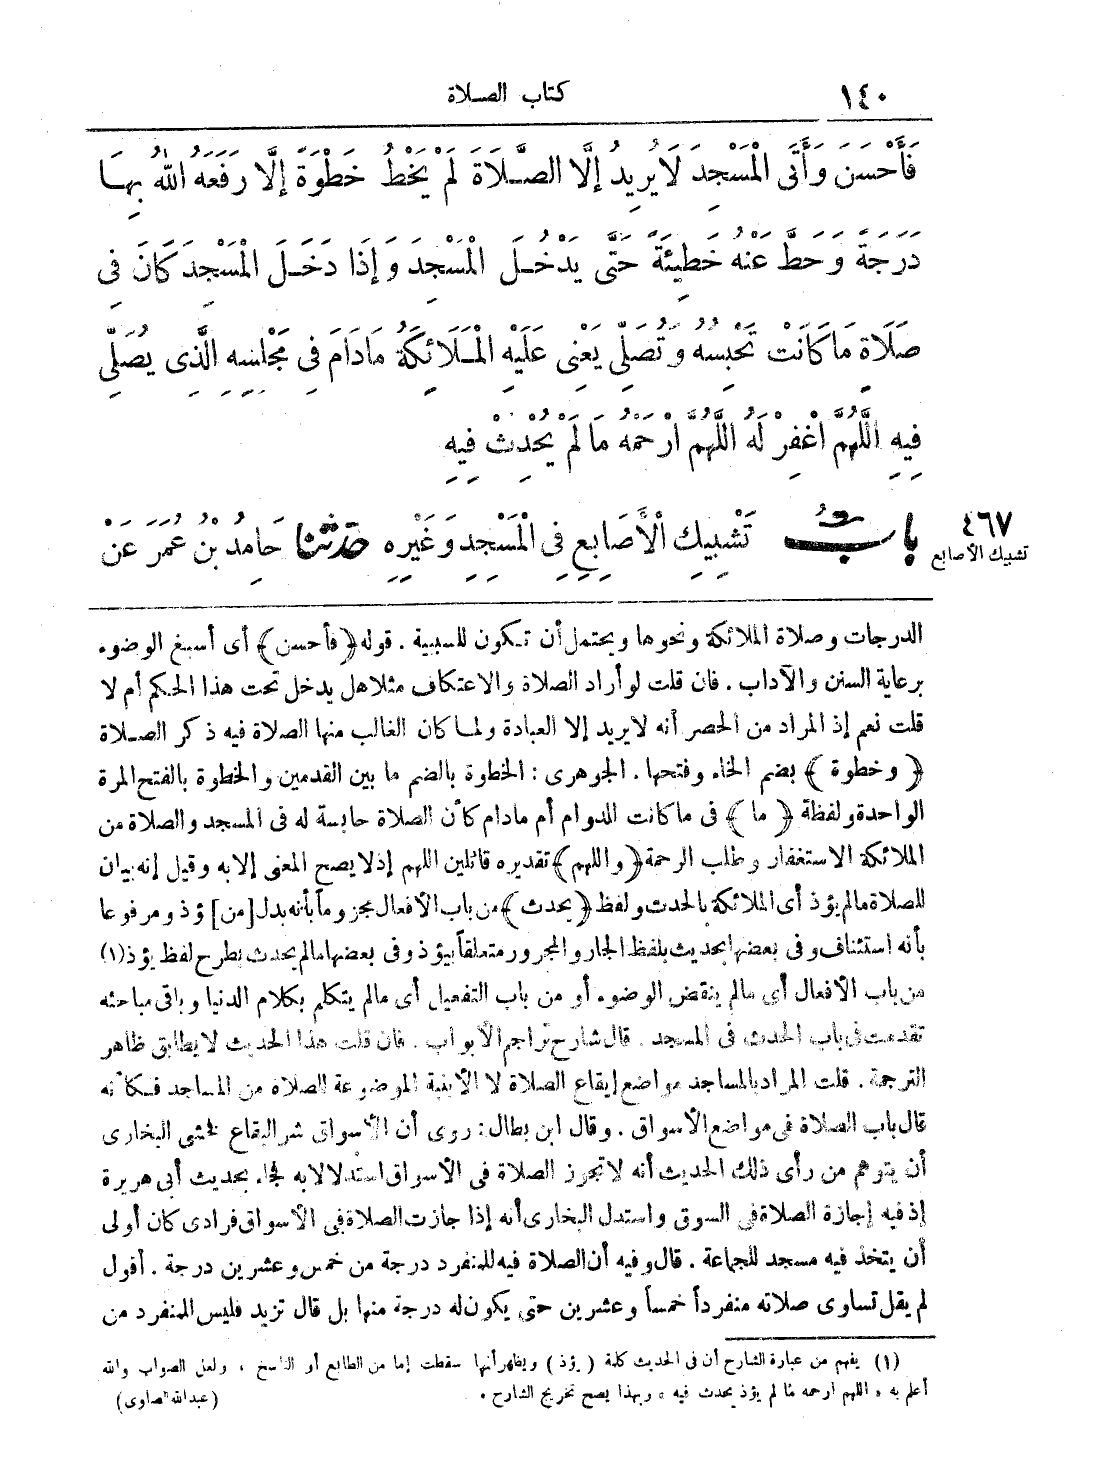 ١٤٠
كتاب الصلاة
فَأَحْسَنَ وَأَتَى الْمَسْجِدَ لَا يُرِيدُ إِلَّا الصَّلَاةَ لَمْ يَخْطُ خَطْوَةً إِلَّا رَفَعَهُ اللهُ بِهَا
دَرَجَةً وَحَطَّ عَنْهُ خَطِيئَةً حَتَّى يَدْخُلَ الْمَسْجِدَ وَإِذَا دَخَلَ الْمَسْجِدَ كَانَ فِى
صَلَاةٍ مَا كَانَتْ تَحْبِسُهُ وَتُصَلِّى يَعْنِى عَلَيْهِ الْمَلَائِكَةُ مَادَامَ فِى مَجْلِسِهِ الَّذِى يُصَلِّى
فِيهِ اللَّهُمَّ اغْفِرْ لَهُ اللَّهُمَّ ارْحَمْهُ مَا لَمْ يُحْدِثْ فِيهِ
٤٦٧
تشبيك الأصابع
بَابُ تَشْبِيكِ الْأَصَابِعِ فِى الْمَسْجِدِ وَغَيْرِهِ حَدَّثَنَا حَامِدُ بْنُ عُمَرَ عَنْ
الدرجات وصلاة الملائكة ونحوها ويحتمل أن تكون للسببية . قوله ﴿فأحسن﴾ أى أسبغ الوضوء
برعاية السنن والآداب . فان قلت لو أراد الصلاة والاعتكاف مثلا هل يدخل تحت هذا الحكم أم لا
قلت نعم إذ المراد من الحصر أنه لا يريد إلا العبادة ولما كان الغالب منها الصلاة فيه ذكر الصلاة
﴿وخطوة﴾ بضم الخاء وفتحها . الجوهرى : الخطوة بالضم ما بين القدمين والخطوة بالفتح المرة
الواحدة ولفظة ﴿ما﴾ فى ما كانت للدوام أم مادام كأن الصلاة حابسة له فى المسجد والصلاة من
الملائكة الاستغفار وطلب الرحمة ﴿واللهم﴾ تقديره قائلين اللهم إذ لا يصح المعنى إلا به وقيل إنه بيان
للصلاة مالم يؤذ أى الملائكة بالحدث ولفظ ﴿يحدث﴾ من باب الأفعال مجزوماً بأنه بدل [من] يؤذ ومرفوعا
بأنه استئناف وفى بعضها بحديث بلفظ الجار والمجرور متعلقاً بيؤذ وفى بعضها مالم يحدث بطرح لفظ يؤذ (١)
من باب الأفعال أى مالم ينقض الوضوء أو من باب التفعيل أى مالم يتكلم بكلام الدنيا وباقى مباحثه
تقدمت فى باب الحدث فى المسجد . قال شارح تراجم الأبواب . فان قلت هذا الحديث لا يطابق ظاهر
الترجمة . قلت المراد بالمساجد مواضع إيقاع الصلاة لا الأبنية الموضوعة للصلاة من المساجد فكأنه
قال باب الصلاة فى مواضع الأسواق . وقال ابن بطال : روى أن الأسواق شر البقاع فخشى البخارى
أن يتوهم من رأى ذلك الحديث أنه لا تجوز الصلاة فى الأسواق استدلالا به فجاء بحديث أبى هريرة
إذ فيه إجازة الصلاة فى السوق واستدل البخارى أنه إذا جازت الصلاة فى الأسواق فرادى كان أولى
أن يتخذ فيه مسجد للجماعة . قال وفيه أن الصلاة فيه للمنفرد درجة من خمس وعشرين درجة . أقول
لم يقل تساوى صلاته منفرداً خمساً وعشرين حتى يكون له درجة منها بل قال تزيد فليس للمنفرد من
(١) يفهم من عبارة الشارح أن فى الحديث كلمة (يؤذ) ويظهر أنها سقطت إما من الطابع أو الناسخ ، ولعل الصواب والله
أعلم به « اللهم ارحمه ما لم يؤذ يحدث فيه » وبهذا يصح تخريج الشارح . (عبدالله الصاوى)